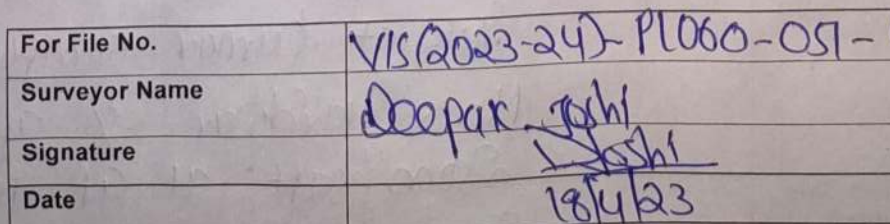 For File No. VIS(2023-24)-PL060-051-
Surveyor Name Deepak Joshi
Signature Joshi
Date 18/4/23